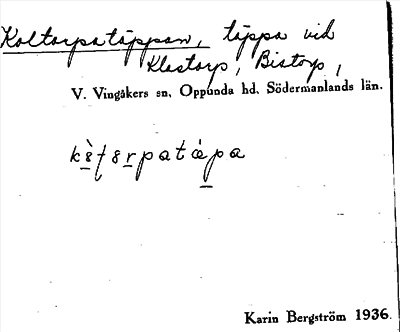 Koltorpatäppan, täppa vid
Klastorp, Bistorp,
V. Vingåkers sn. Oppunda hd. Södermanlands län.
Karin Bergström 1936.